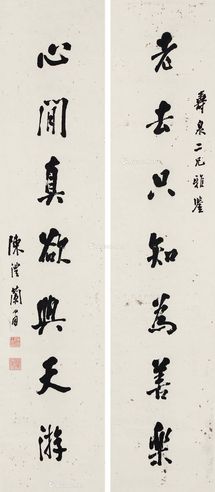 壽泉二兄雅鑒
老去只知為善樂
心閒真欲與天游
陳澧蘭甫